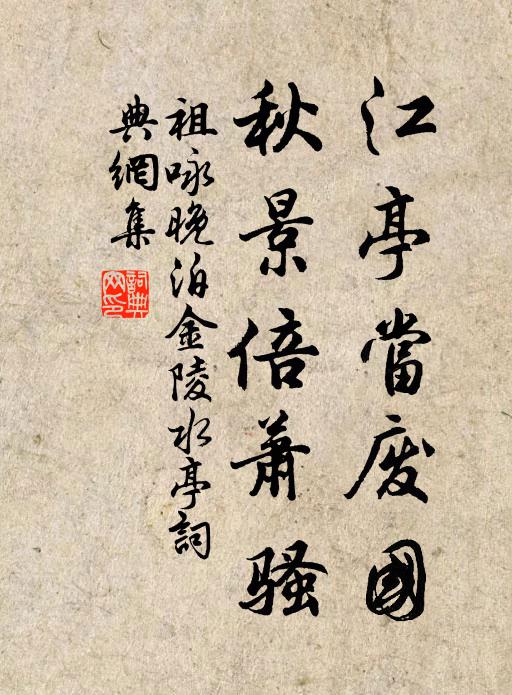 江亭當废國
秋景倍蕭骚
祖咏晚泊金陵水亭詞
典網集
詞典网印